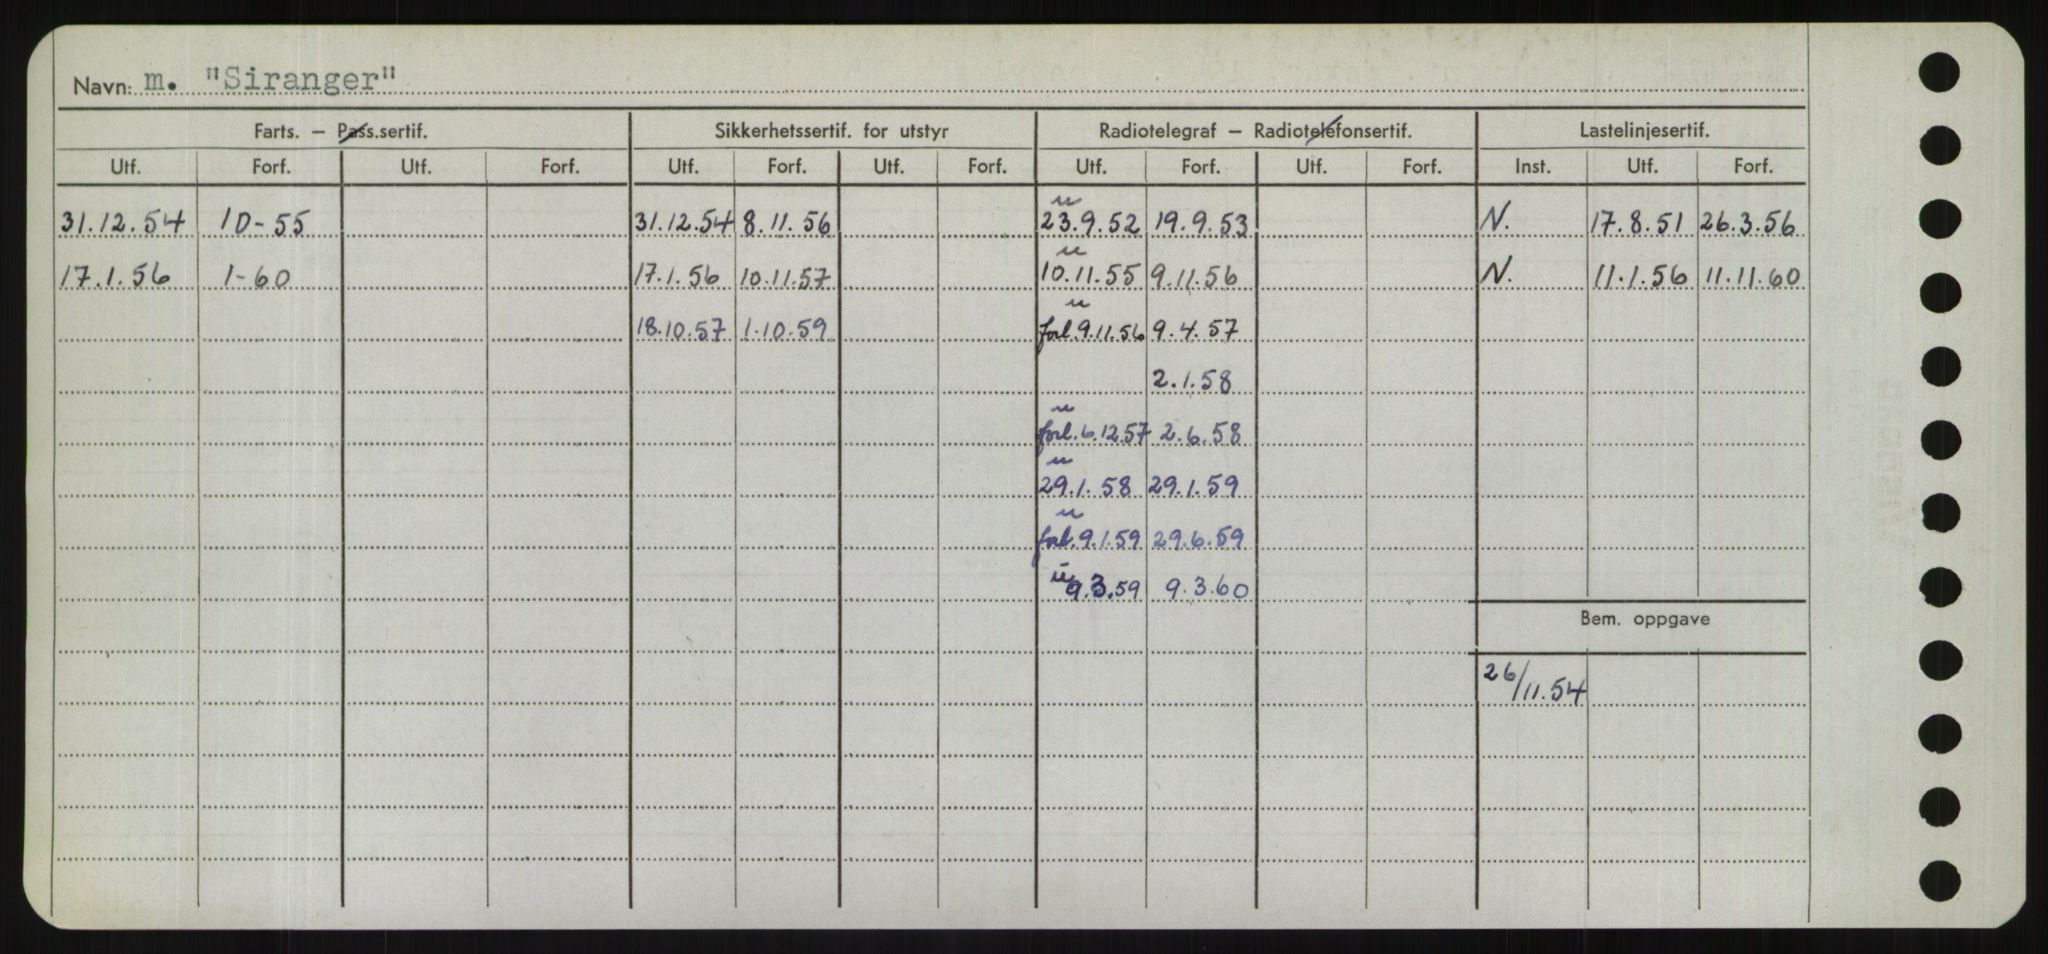 Navn: m. "Siranger"
Farts. – Pass.sertif. Sikkerhetssertif. for utstyr Radiotelegraf – Radiotelefonsertif. Lastelinjesertif.
Utf. Forf. Utf. Forf. Utf. Forf. Utf. Forf. Utf. Forf. Utf. Forf. Inst. Utf. Forf.
u
31.12.54 10-55 31.12.54 8.11.56 23.9.52 19.9.53 N. 17.8.51 26.3.56
u
17.1.56 1-60 17.1.56 10.11.57 10.11.55 9.11.56 N. 11.1.56 11.11.60
u
18.10.57 1.10.59 forl. 9.11.56 9.4.57
2.1.58
u
forl. 6.12.57 2.6.58
u
29.1.58 29.1.59
u
forl. 9.1.59 29.6.59
u
9.3.59 9.3.60
Bem. oppgave
26/11.54